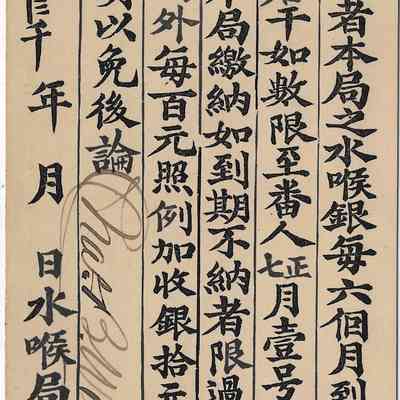 者本局之水喉銀每六個月到
干如數限至番人正七月壹号
局繳納如到期不納者限過
外每百元照例加收銀拾元
以免後論
年月日水喉局